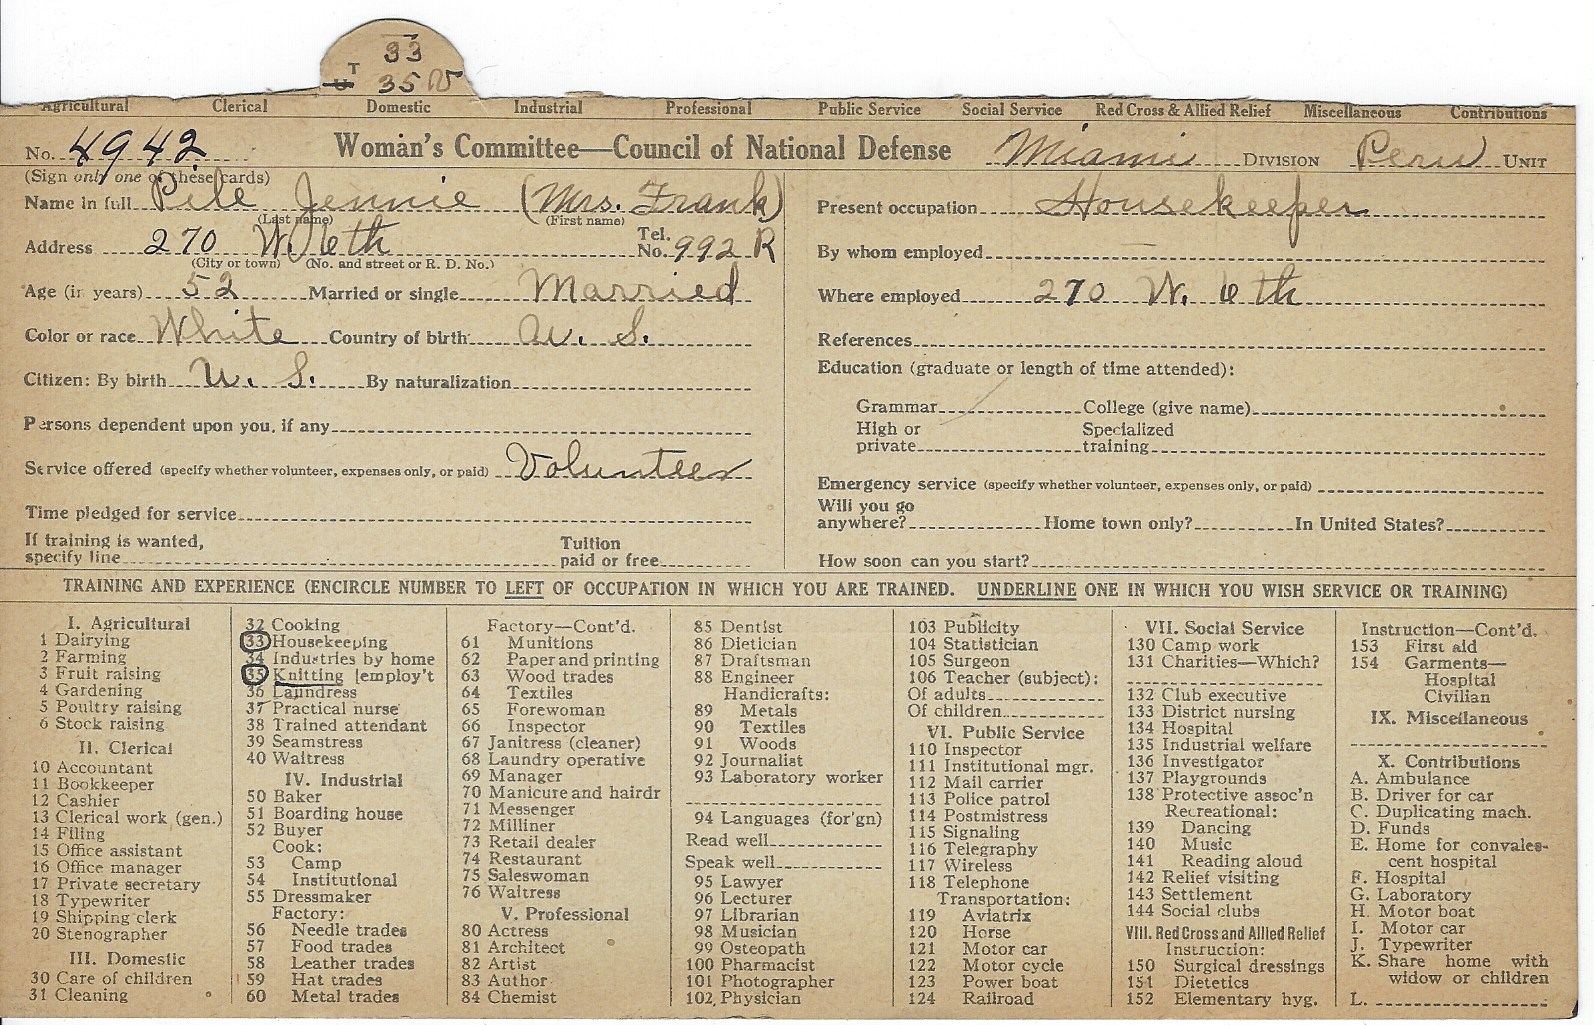 33
T
U 35 V
Agricultural Clerical Domestic Industrial Professional Public Service Social Service Red Cross & Allied Relief Miscellaneous Contributions
No. 4942 Woman's Committee—Council of National Defense Miami DIVISION Peru UNIT
(Sign only one of these cards)
Name in full Pile Jennie (Mrs. Frank)
(Last name) (First name)
Address 270 W. 6th Tel. No. 992 R
(City or town) (No. and street or R. D. No.)
Age (in years) 52 Married or single Married
Color or race White Country of birth U. S.
Citizen: By birth U. S. By naturalization
Persons dependent upon you, if any
Service offered (specify whether volunteer, expenses only, or paid) Volunteer
Time pledged for service
If training is wanted,
specify line Tuition paid or free
Present occupation Housekeeper
By whom employed —
Where employed 270 W. 6th
References
Education (graduate or length of time attended):
Grammar College (give name)
High or private Specialized training
Emergency service (specify whether volunteer, expenses only, or paid)
Will you go
anywhere? Home town only? In United States?
How soon can you start?
TRAINING AND EXPERIENCE (ENCIRCLE NUMBER TO LEFT OF OCCUPATION IN WHICH YOU ARE TRAINED. UNDERLINE ONE IN WHICH YOU WISH SERVICE OR TRAINING)
I. Agricultural
1 Dairying
2 Farming
3 Fruit raising
4 Gardening
5 Poultry raising
6 Stock raising
II. Clerical
10 Accountant
11 Bookkeeper
12 Cashier
13 Clerical work (gen.)
14 Filing
15 Office assistant
16 Office manager
17 Private secretary
18 Typewriter
19 Shipping clerk
20 Stenographer
III. Domestic
30 Care of children
31 Cleaning
32 Cooking
33 Housekeeping
34 Industries by home
35 Knitting [employ't
36 Laundress
37 Practical nurse
38 Trained attendant
39 Seamstress
40 Waitress
IV. Industrial
50 Baker
51 Boarding house
52 Buyer
Cook:
53 Camp
54 Institutional
55 Dressmaker
Factory:
56 Needle trades
57 Food trades
58 Leather trades
59 Hat trades
60 Metal trades
Factory—Cont'd.
61 Munitions
62 Paper and printing
63 Wood trades
64 Textiles
65 Forewoman
66 Inspector
67 Janitress (cleaner)
68 Laundry operative
69 Manager
70 Manicure and hairdr
71 Messenger
72 Milliner
73 Retail dealer
74 Restaurant
75 Saleswoman
76 Waitress
V. Professional
80 Actress
81 Architect
82 Artist
83 Author
84 Chemist
85 Dentist
86 Dietician
87 Draftsman
88 Engineer
Handicrafts:
89 Metals
90 Textiles
91 Woods
92 Journalist
93 Laboratory worker
94 Languages (for'gn)
Read well
Speak well
95 Lawyer
96 Lecturer
97 Librarian
98 Musician
99 Osteopath
100 Pharmacist
101 Photographer
102 Physician
103 Publicity
104 Statistician
105 Surgeon
106 Teacher (subject):
Of adults
Of children
VI. Public Service
110 Inspector
111 Institutional mgr.
112 Mail carrier
113 Police patrol
114 Postmistress
115 Signaling
116 Telegraphy
117 Wireless
118 Telephone
Transportation:
119 Aviatrix
120 Horse
121 Motor car
122 Motor cycle
123 Power boat
124 Railroad
VII. Social Service
130 Camp work
131 Charities—Which?
132 Club executive
133 District nursing
134 Hospital
135 Industrial welfare
136 Investigator
137 Playgrounds
138 Protective assoc'n
Recreational:
139 Dancing
140 Music
141 Reading aloud
142 Relief visiting
143 Settlement
144 Social clubs
VIII. Red Cross and Allied Relief
Instruction:
150 Surgical dressings
151 Dietetics
152 Elementary hyg.
Instruction—Cont'd.
153 First aid
154 Garments—
Hospital
Civilian
IX. Miscellaneous
X. Contributions
A. Ambulance
B. Driver for car
C. Duplicating mach.
D. Funds
E. Home for convales-
cent hospital
F. Hospital
G. Laboratory
H. Motor boat
I. Motor car
J. Typewriter
K. Share home with
widow or children
L.